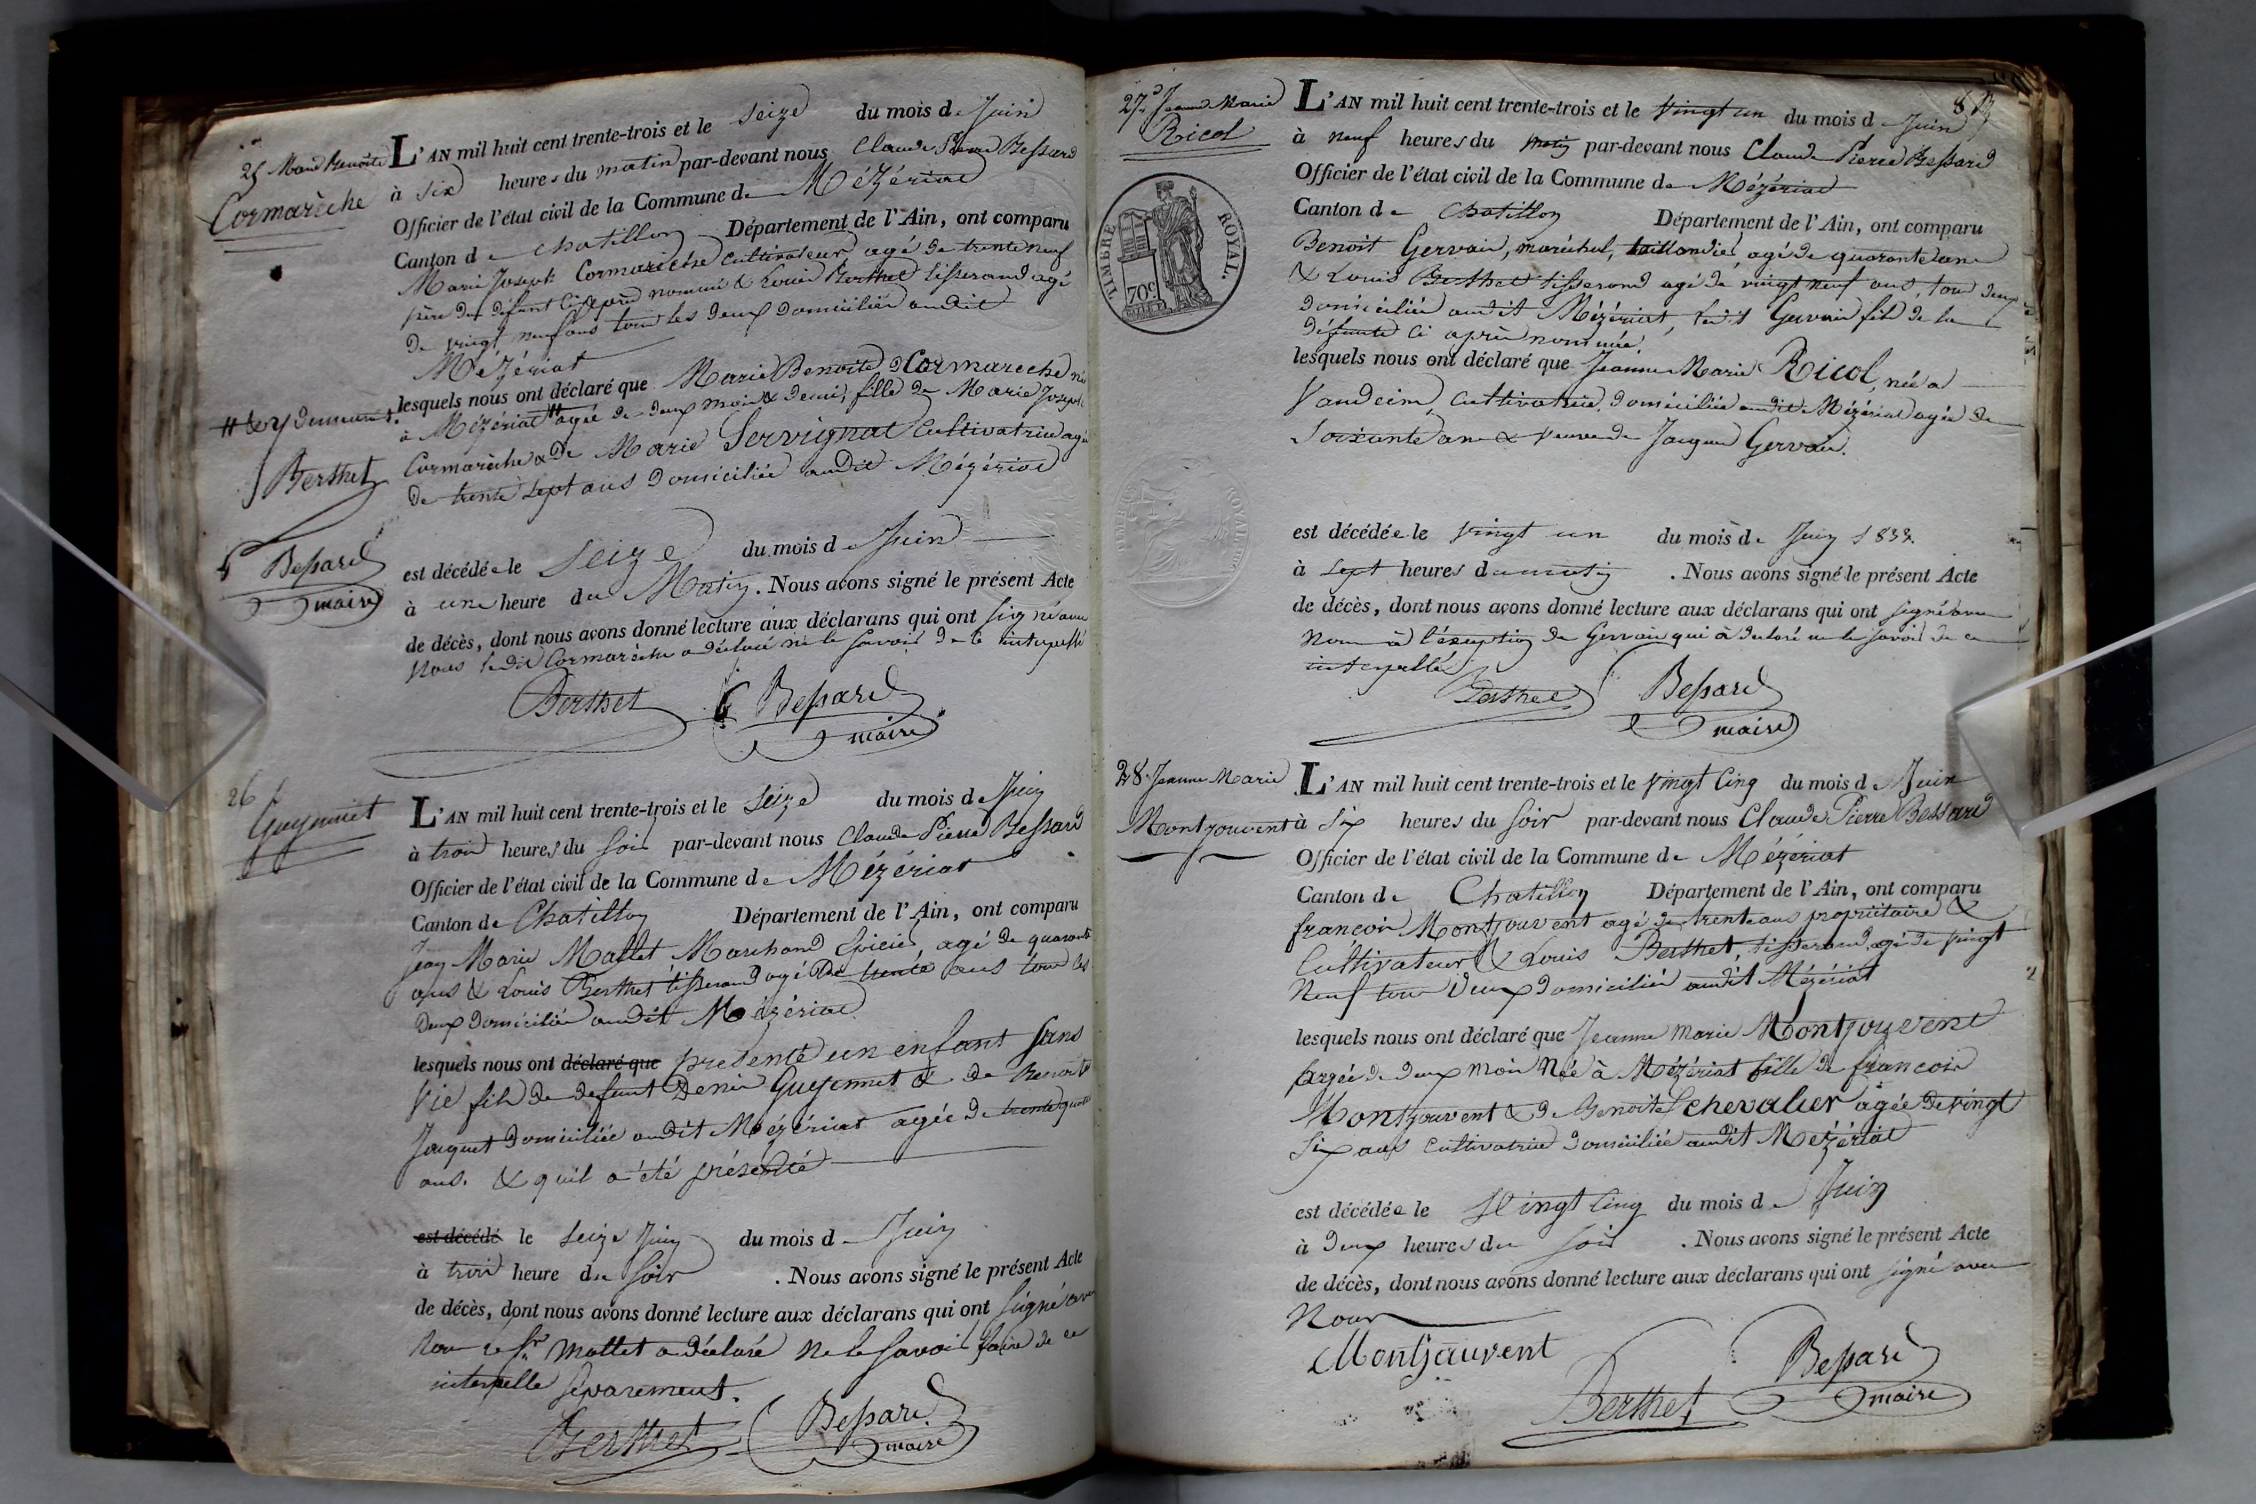 25 Marie Benoite
Cormarèche
L'AN mil huit cent trente-trois et le seize du mois de Juin
à six heures du matin par-devant nous Claude Pierre Bessard
Officier de l'état civil de la Commune de Mézériat
Canton de Chatillon Département de l'Ain, ont comparu
Marie Joseph Cormarèche cultivateur agé de trente neuf
père du défunt ci après nommé & Louis Berthet tisserand agé
de vingt neuf ans tous les deux domiciliés audit
Mézériat
lesquels nous ont déclaré que Marie Benoite Cormareche née
à Mézériat # agée de deux mois & demi, fille de Marie Joseph
# & y demeurant.
Cormarèche & de Marie Servignat cultivatrice agée
de trente sept ans domiciliée audit Mézériat
Berthet
Bessard
maire
est décédée le seize du mois de Juin
à une heure du Matin. Nous avons signé le présent Acte
de décès, dont nous avons donné lecture aux déclarans qui ont signé avec
nous ledit Cormarèche a déclaré ne le savoir de ce interpellé
Berthet Bessard
maire
26
Guyennet
L'AN mil huit cent trente-trois et le seize du mois de Juin
à trois heures du soir par-devant nous Claude Pierre Bessard
Officier de l'état civil de la Commune de Mézériat
Canton de Chatillon Département de l'Ain, ont comparu
Jean Marie Mallet Marchand Epicier, agé de quarante
ans & Louis Berthet tisserand agé de trente ans tous les
deux domiciliés audit Mézériat
lesquels nous ont déclaré que présenté un enfant sans
vie fils de defunt Denis Guyennet & de Benoite
Jaquet domiciliée audit Mézériat agée de trente quatre
ans. & qu'il a été présenté
est décédé le seize Juin du mois de Juin
à trois heure du soir. Nous avons signé le présent Acte
de décès, dont nous avons donné lecture aux déclarans qui ont signé avec
nous le Sr Mallet a déclaré ne le savoir faire de ce
interpellé séparement.
Berthet Bessard
maire
8
27. Jeanne Marie
Ricol
TIMBRE ROYAL
70c
L'AN mil huit cent trente-trois et le vingt un du mois de Juin
à neuf heures du matin par-devant nous Claude Pierre Bessard
Officier de l'état civil de la Commune de Mézériat
Canton de Chatillon Département de l'Ain, ont comparu
Benoit Gervais, maréchal, taillandier, agé de quarante ans
& Louis Berthet tisserand agé de vingt neuf ans, tous deux
domiciliés audit Mézériat, ledit Gervais fils de la
défunte ci après nommée.
lesquels nous ont déclaré que Jeanne Marie Ricol, née a
Vandeins, cultivatrice, domiciliée audit Mézériat agée de
soixante ans & veuve de Jacques Gervais.
est décédée le vingt un du mois de Juin 1833.
à sept heures du matin. Nous avons signé le présent Acte
de décès, dont nous avons donné lecture aux déclarans qui ont signé avec
nous à l'exeption de Gervais qui à declaré ne le savoir de ce
interpellé
Berthet Bessard
maire
28. Jeanne Marie
Montjouvent
L'AN mil huit cent trente-trois et le vingt cinq du mois de Juin
à six heures du soir par-devant nous Claude Pierre Bessard
Officier de l'état civil de la Commune de Mézériat
Canton de Chatillon Département de l'Ain, ont comparu
françois Montjouvent agé de trente ans propriétaire &
Cultivateur & Louis Berthet, tisserand agé de vingt
neuf tous deux domiciliés audit Mézériat
lesquels nous ont déclaré que Jeanne Marie Montjouvent
agée de deux mois Née à Mézériat fille de françois
Montjouvent & de Benoite Chevalier agée de vingt
six ans cultivatrice domiciliée audit Mézériat
est décédée le vingt cinq du mois de Juin
à deux heures du soir. Nous avons signé le présent Acte
de décès, dont nous avons donné lecture aux déclarans qui ont signé avec
nous
Montjauvent
Berthet Bessard
maire